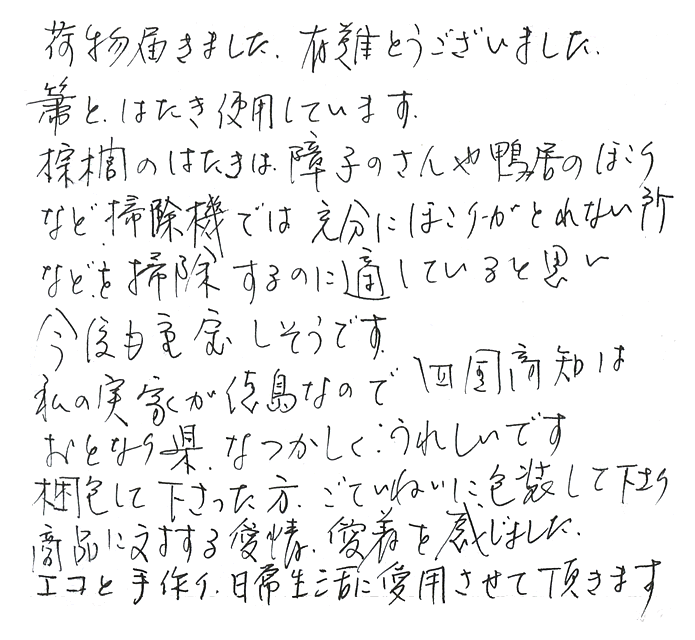 荷物届きました．有難とうございました．
箒と．はたき使用しています．
棕櫚のはたきは．障子のさんや鴨居のほこり
など掃除機では充分にほこりがとれない所
などを掃除するのに適していると思い
今後も重宝しそうです．
私の実家が徳島なので四国高知は
おとなり県．なつかしく．うれしいです
梱包して下さった方．ごていねいに包装して下さり
商品に対する愛情．愛着を感じました．
エコと手作り．日常生活に愛用させて頂きます